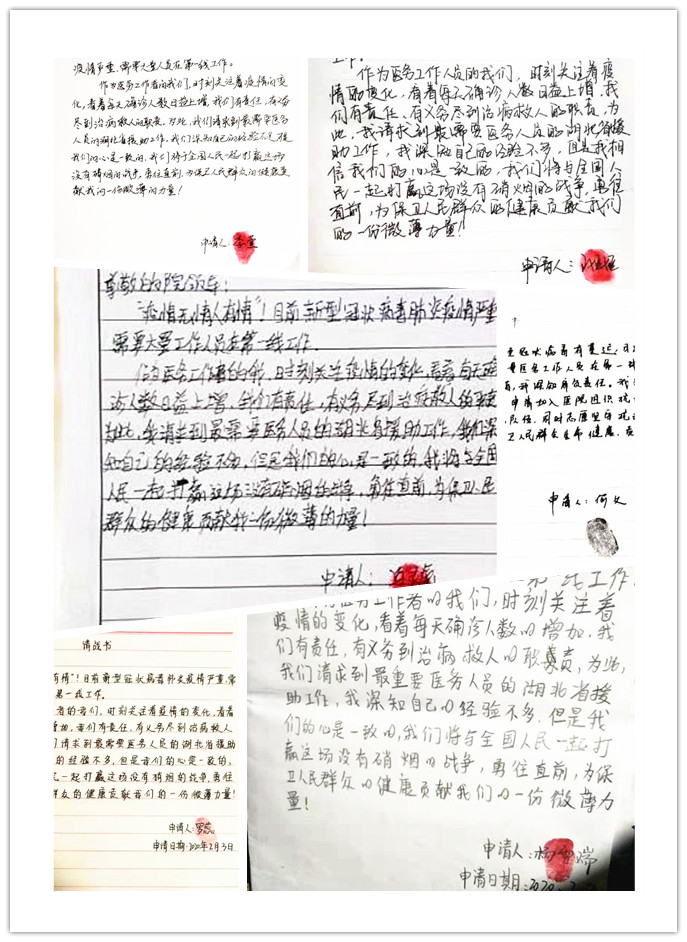 疫情严重，需要大量人员在第一线工作。
作为医务工作者的我们，时刻关注着疫情的变
化，看着每天确诊人数日益上增，我们有责任，有义务
尽到治病救人的职责，为此，我们请求到最需要医务
人员的湖北省援助工作，我们深知自己的经验不足，但
我们的心是一致的，我们将于全国人民一起打赢这场
没有硝烟的战争，勇往直前，为保卫人民群众的健康贡
献我们一份微薄的力量！
申请人：
工作。
作为医务工作人员的我们，时刻关注着疫
情的变化，看着每天确诊人数日益上增，我
们有责任、有义务尽到治病救人的职责，为
此，我请求到最需要医务人员的湖北省援
助工作，我深知自己的经验不多，但是我相
信我们的心是一致的，我们将与全国人
民一起打赢这场没有硝烟的战争，勇往
直前，为保卫人民群众的健康贡献我们
的一份微薄力量！
申请人：
尊敬的院领导：
“疫情无情人有情”！目前新型冠状病毒肺炎疫情严重
需要大量工作人员在第一线工作。
作为医务工作者的我，日时刻关注疫情的变化，看着每天确
诊人数日益上增，我们有责任，有义务尽到治病救人的职责
为此，我请求到最需要医务人员的湖北省援助工作，我们深
知自己的经验不多，但是我们的心是一致的，我将与全国
人民一起打赢这场没有硝烟的战争，勇往直前，为保卫人民
群众的健康贡献我一份微薄的力量！
申请人：
冠状病毒有蔓延，目
量医务工作人员在第一线
有，我深知身负责任。我
申请加入医院组织抗
队伍，同时志愿坚守抗
卫人民群众生命健康，贡
申请人：何
请战书
有情”！目前新型冠状病毒肺炎疫情严重，需
第一线工作。
者的我们，时刻关注着疫情的变化，看着
增加，我们有责任，有义务尽到治病救人
们请求到最需要医务人员的湖北省援助
的经验不多，但是我们的心是一致的，
民一起打赢这场没有硝烟的战争，勇往
群众的健康贡献我们的一份微薄力量！
申请人：罗
申请日期：2020年2月3日
线工作。
医务工作者的我们，时刻关注着
疫情的变化，看着每天确诊人数的增加，我
们有责任，有义务到治病救人的职责，为此，
我们请求到最重要医务人员的湖北省援
助工作，我深知自己的经验不多，但是我
们的心是一致的，我们将与全国人民一起打
赢这场没有硝烟的战争，勇往直前，为保
卫人民群众的健康贡献我们的一份微薄力
量！
申请人：杨雪端
申请日期：2020